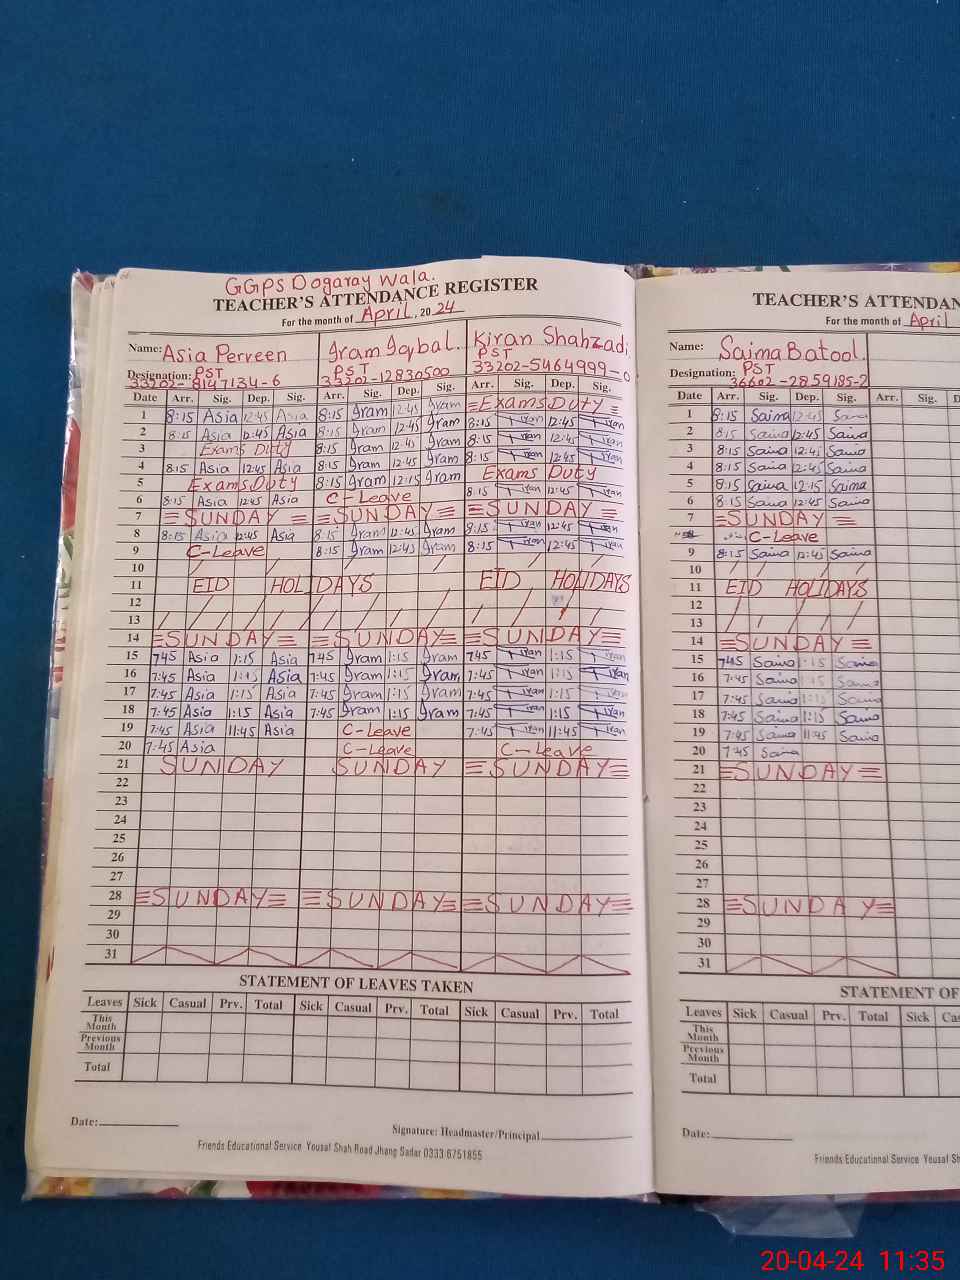 GGPS Dogaray Wala.
TEACHER'S ATTENDANCE REGISTER
For the month of April, 2024
Name: Asia Perveen Iram Iqbal. Kiran Shahzadi
Designation: PST PST PST
33202-8147134-6 33202-12830500 33202-5464999-0
Date Arr. Sig. Dep. Sig. Arr. Sig. Dep. Sig. Arr. Sig. Dep. Sig.
1 8:15 Asia 12:45 Asia 8:15 Iram 12:45 Iram Exams Duty
2 8:15 Asia 12:45 Asia 8:15 Iram 12:45 Iram 8:15 Kiran 12:45 Kiran
3 Exams Duty 8:15 Iram 12:45 Iram 8:15 Kiran 12:45 Kiran
4 8:15 Asia 12:45 Asia 8:15 Iram 12:45 Iram 8:15 Kiran 12:45 Kiran
5 Exams Duty 8:15 Iram 12:15 Iram Exams Duty
6 8:15 Asia 12:45 Asia C-Leave 8:15 Kiran 12:45 Kiran
7 SUNDAY SUNDAY SUNDAY
8 8:15 Asia 12:45 Asia 8:15 Iram 12:45 Iram 8:15 Kiran 12:45 Kiran
9 C-Leave 8:15 Iram 12:45 Iram 8:15 Kiran 12:45 Kiran
10
11 EID HOLIDAYS EID HOLIDAYS
12
13
14 SUNDAY SUNDAY SUNDAY
15 7:45 Asia 1:15 Asia 7:45 Iram 1:15 Iram 7:45 Kiran 1:15 Kiran
16 7:45 Asia 1:15 Asia 7:45 Iram 1:15 Iram 7:45 Kiran 1:15 Kiran
17 7:45 Asia 1:15 Asia 7:45 Iram 1:15 Iram 7:45 Kiran 1:15 Kiran
18 7:45 Asia 1:15 Asia 7:45 Iram 1:15 Iram 7:45 Kiran 1:15 Kiran
19 7:45 Asia 11:45 Asia C-Leave 7:45 Kiran 11:45 Kiran
20 7:45 Asia C-Leave C-Leave
21 SUNDAY SUNDAY SUNDAY
22
23
24
25
26
27
28 SUNDAY SUNDAY SUNDAY
29
30
31
STATEMENT OF LEAVES TAKEN
Leaves Sick Casual Prv. Total Sick Casual Prv. Total Sick Casual Prv. Total
This Month
Previous Month
Total
Date:
Signature: Headmaster/Principal
Friends Educational Service Yousaf Shah Road Jhang Sadar 0333 6751855
TEACHER'S ATTENDAN
For the month of April
Name: Saima Batool.
Designation: PST
36602-2859185-2
Date Arr. Sig. Dep. Sig. Arr. Sig. D
1 8:15 Saima 12:45 Saima
2 8:15 Saima 12:45 Saima
3 8:15 Saima 12:45 Saima
4 8:15 Saima 12:45 Saima
5 8:15 Saima 12:15 Saima
6 8:15 Saima 12:45 Saima
7 SUNDAY
C-Leave
9 8:15 Saima 12:45 Saima
10
11 EID HOLIDAYS
12
13
14 SUNDAY
15 7:45 Saima 1:15 Saima
16 7:45 Saima 1:15 Saima
17 7:45 Saima 1:15 Saima
18 7:45 Saima 1:15 Saima
19 7:45 Saima 11:45 Saima
20 7:45 Saima
21 SUNDAY
22
23
24
25
26
27
28 SUNDAY
29
30
31
STATEMENT OF
Leaves Sick Casual Prv. Total Sick Cas
This Month
Previous Month
Total
Date:
Friends Educational Service Yousaf Sh
20-04-24 11:35